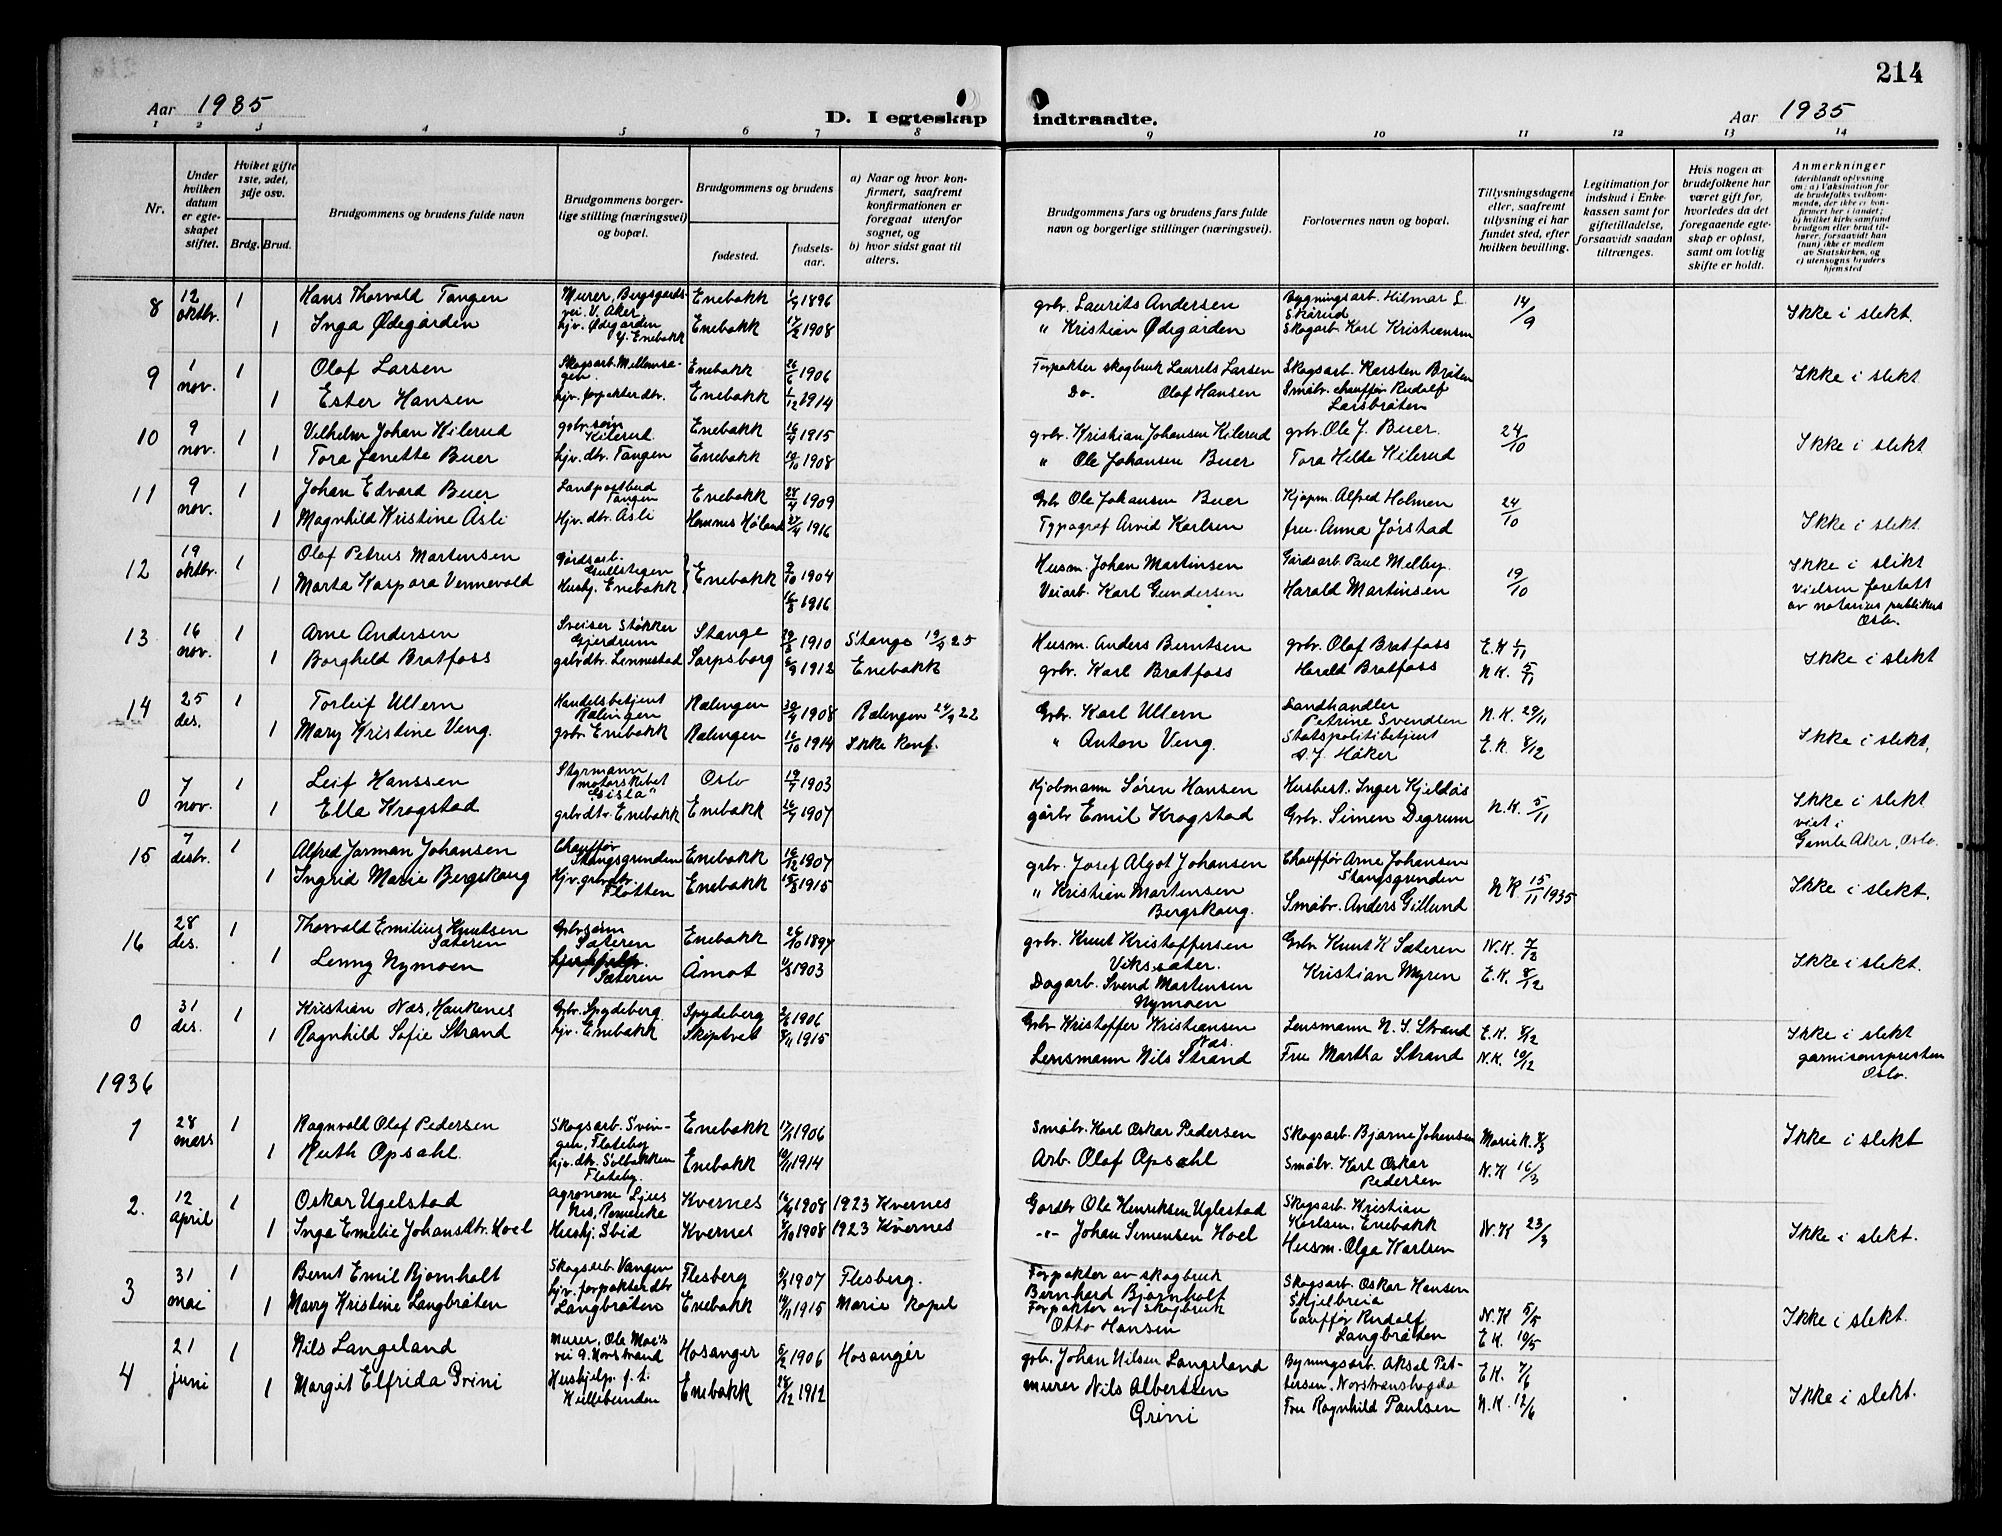 214
Aar 1935
D. I egteskap indtraadte.
Aar 1935
1 2 3 4 5 6 7 8 9 10 11 12 13 14
Nr.
Under hvilken datum er egteskapet stiftet.
Hviket gifte 1ste, 2det, 3dje osv.
Brdg. Brud.
Brudgommens og brudens fulde navn
Brudgommens borgerlige stilling (næringsvei) og bopæl.
Brudgommens og brudens
fødested.
fødselsaar.
a) Naar og hvor konfirmert, saafremt konfirmationen er foregaat utenfor sognet, og
b) hvor sidst gaat til alters.
Brudgommens fars og brudens fars fulde navn og borgerlige stillinger (næringsvei).
Forlovernes navn og bopæl.
Tillysningsdagene eller, saafremt tillysning ei har fundet sted, efter hvilken bevilling.
Legitimation for indskud i Enkekassen samt for giftetilladelse, forsaavidt saadan tiltrænges.
Hvis nogen av brudefolkene har været gift før, hvorledes da det foregaaende egteskap er opløst, samt om lovlig skifte er holdt.
Anmerkninger (deriblandt oplysning om: a) Vaksination for de brudefolks velkommende, der ikke er konfirmert her i landet; b) hvilket kirkesamfund brudgom eller brud tilhører, forsaavidt han (hun) ikke er medlem av Statskirken, og c) utensogns bruders hjemsted
8 12 oktbr. 1 Hans Thorvald Tangen Murer, Bergsgards vei. V. Aker Enebakk 1/9 1896 gbr. Laurits Andersen Bygningsarb. Hilmar L. Skårud 14/9 Ikke i slekt.
1 Inga Ødegården hjv. Ødegården Y. Enebakk Enebakk 17/2 1908 " Kristian Ødegården Skogarb Karl Kristiansen
9 1 nov. 1 Olaf Larsen Skogsarb. Enebakk 26/6 1906 Forpakter skogbruk Laurits Larsen Skogsarb. Karsten Bråten Ikke i slekt
1 Ester Hansen hjv. forpakterdtr. Enebakk 1/12 1914 Do. Olaf Hansen Småbr. chauffør Rudolf
10 9 nov. 1 Vilhelm Johan Kilerud gbr. sønn Kilerud Enebakk 16/4 1915 gbr. Kristian Johansen Kilerud gbr. Ole J. Buer. 24/10 Ikke i slekt
1 Tora Janette Buer hjv. dtr. Tangen Enebakk 19/10 1908 " Ole Johansen Buer Tora Hilda Kilerud
11 9 nov. 1 Johan Edvard Buer Landpostbud Tangen Enebakk 28/4 1909 Gbr Ole Johansen Buer Kjøpm. Alfred Holmen 24/10
1 Magnhild Kristine Asli Hjv. dtr. Asli Hemnes Høland 27/4 1916 Typograf Arvid Karlsen fru. Anna Jørstad Ikke i slekt.
12 19 oktbr. 1 Olaf Petrus Martensen Gårdsarb. Gullstegen Enebakk 9/10 1904 Husm. Johan Martinsen Gårdsarb. Paul Melby. 19/10 Ikke i slekt
1 Marta Kaspara Vennevold Hushj. Enebakk 16/8 1916 Veiarb. Karl Gundersen Harald Martinsen Vielsen foretatt av notarius publikus Oslo.
13 16 nov. 1 Arne Andersen Sveiser Støkker Gjerdrum Stange 1910 Stange 19/9 25 Husm. Anders Berntsen gbr. Olaf Bratfoss E.K 1/11
1 Borghild Bratfoss gbrdtr. Lennestad Sarpsborg 6/9 1912 Enebakk gbr. Karl Bratfoss Harald Bratfoss N.K. 5/11 Ikke i slekt
14 25 des. 1 Torleif Ullern Handelsbetjent Rælingen Rælingen 30/4 1908 Rælingen 24/9 22 Gbr. Karl Ullern Landhandler Petrine Svendsen N.K. 29/11
1 Mary Kristine Veng. gbr. Enebakk Rælingen 16/10 1914 Ikke konf. " Anton Veng. Statspolitibetjent S. J. Håker E.K. 8/12 Ikke i slekt,
0 7 nov. 1 Leif Hanssen Styrmann motorskibet "Gista" Oslo 19/7 1903 Kjøbmann Søren Hansen Husbest. Inger Kjeldås N.K. 5/11 Ikke i slekt
1 Ella Kragstad gbrdtr. Enebakk Enebakk 26/9 1907 gårbr Emil Kragstad Gbr. Simen Degrum viet i Gamle Aker, Oslo.
15 7 desbr. 1 Alfred Jarman Johansen Chauffør Stangsgrinden Enebakk 16/12 1907 gbr. Josef Algot Johansen Chauffør Arne Johansen Stangsgrinden N.K 15/11 1935
1 Ingrid Marie Bergskaug Hjv. gbrdtr. Flatten Enebakk 15/8 1915 " Kristian Martensen Bergskaug. Småbr. Anders Gillund Ikke i slekt.
16 28 des. 1 Thorvald Emilius Knutsen Sæteren Gbrsønn Sæteren Enebakk 26/10 1897 gbr. Knut Kristoffersen Vikssæter. Gbr. Knut K Sæteren N.K. 7/2
1 Lenny Nymoen Sæteren Åmot 1903 Dagarb. Svend Martensen Nymoen Kristian Myren E.K. 8/12 Ikke i slekt.
0 31 des. 1 Kristian Næs, Haukenes Gbr. Spydeberg Spydeberg 1906 Gbr Kristoffer Kristiansen Næs. Lensmann N. S. Strand E.K. 8/12 Ikke i slekt
1 Ragnhild Sofie Strand hjv. Enebakk Skiptvet 8/11 1915 Lensmann Nils Strand Fru Martha Strand N.K. 10/12 garnisonspresten Oslo.
1936
1 28 mars 1 Ragnvald Olaf Pedersen Skogsarb. Svingen, Flateby Enebakk 1906 Småbr. Karl Oskar Pedersen Skogsarb. Bjarne Johansen Marie K. 8/3 Ikke i slekt
1 Ruth Opsahl. hjv. dtr. Solbakken Flateby. Enebakk 19/11 1914 Arb. Olaf Opsahl Småbr. Karl Oskar Pedersen N.K 16/3
2. 12 April 1 Oskar Ugelstad Agronom Ljus Nes, Romerike Kvernes 16/4 1908 1923 Kvernes Gardbr Ole Henriksen Uglestad Skogarb. Kristian Karlsen, Enebakk N.K 23/3
1 Inga Emelie Johansdtr. Hoel Hushj. Sbid Kvernes 7/10 1908 1923 Kvernes -"- Johan Simensen Hoel Husm. Olga Karlsen Ikke i slekt.
3 31 mai 1 Bernt Emil Bjørnholt Skogsarb. Vangen Flesberg 1907 Flesberg. Forpakter av skogbruk Bernhard Bjørnholt Skogsarb. Oskar Hansen Skjelbreia N.K 5/5
1 Marry Kristine Langbråten hjv. forpakterdtr Langbråten Enebakk 14/11 1915 Marie kapel Forpakter av skogbruk Otto Hansen Cauffør Rudolf Langbråten E.K. 10/5 Ikke i slekt.
4 21 juni 1 Nils Langeland Murer, Ole Moe's vei 9. Norstrand Hosanger 6/2 1906 Hosanger gbr. Johan Nilsen Langeland Byningsarb. Aksel Pettersen, Norstranshøgda E.K. 7/6
1 Margit Elfrida Grini Hushjelp f.t. Enebakk 28/12 1912 murer Nils Albertsen Grini Fru Ragnhild Paulsen N.K. 12/6 Ikke i slekt.